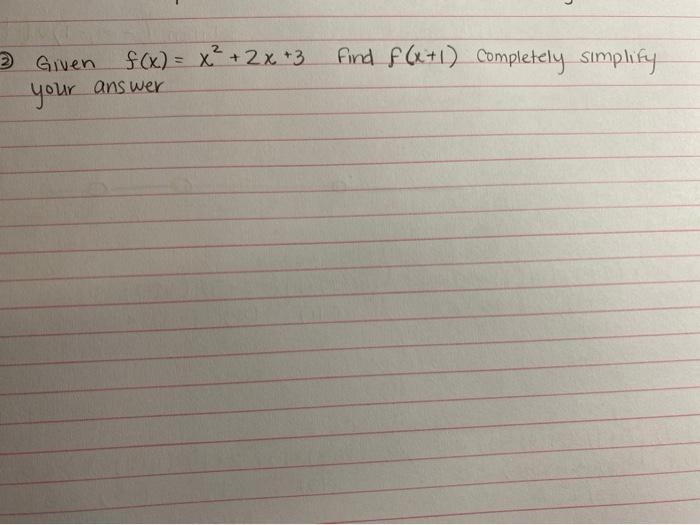 ③ Given f(x) = x² + 2x +3 Find f(x+1) Completely simplify
your answer